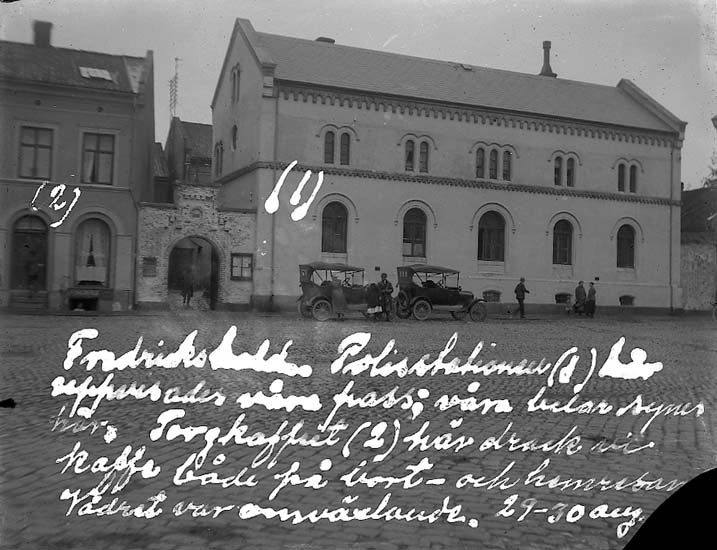 (2)
(1)
Fredrickshald. Polisstationen (1) här
uppvisades våra pass; våra bilar synes
här. Torgkaffeet (2) här drack vi
kaffe både på bort- och hemresan
Vädret var omväxlande. 29-30 aug.